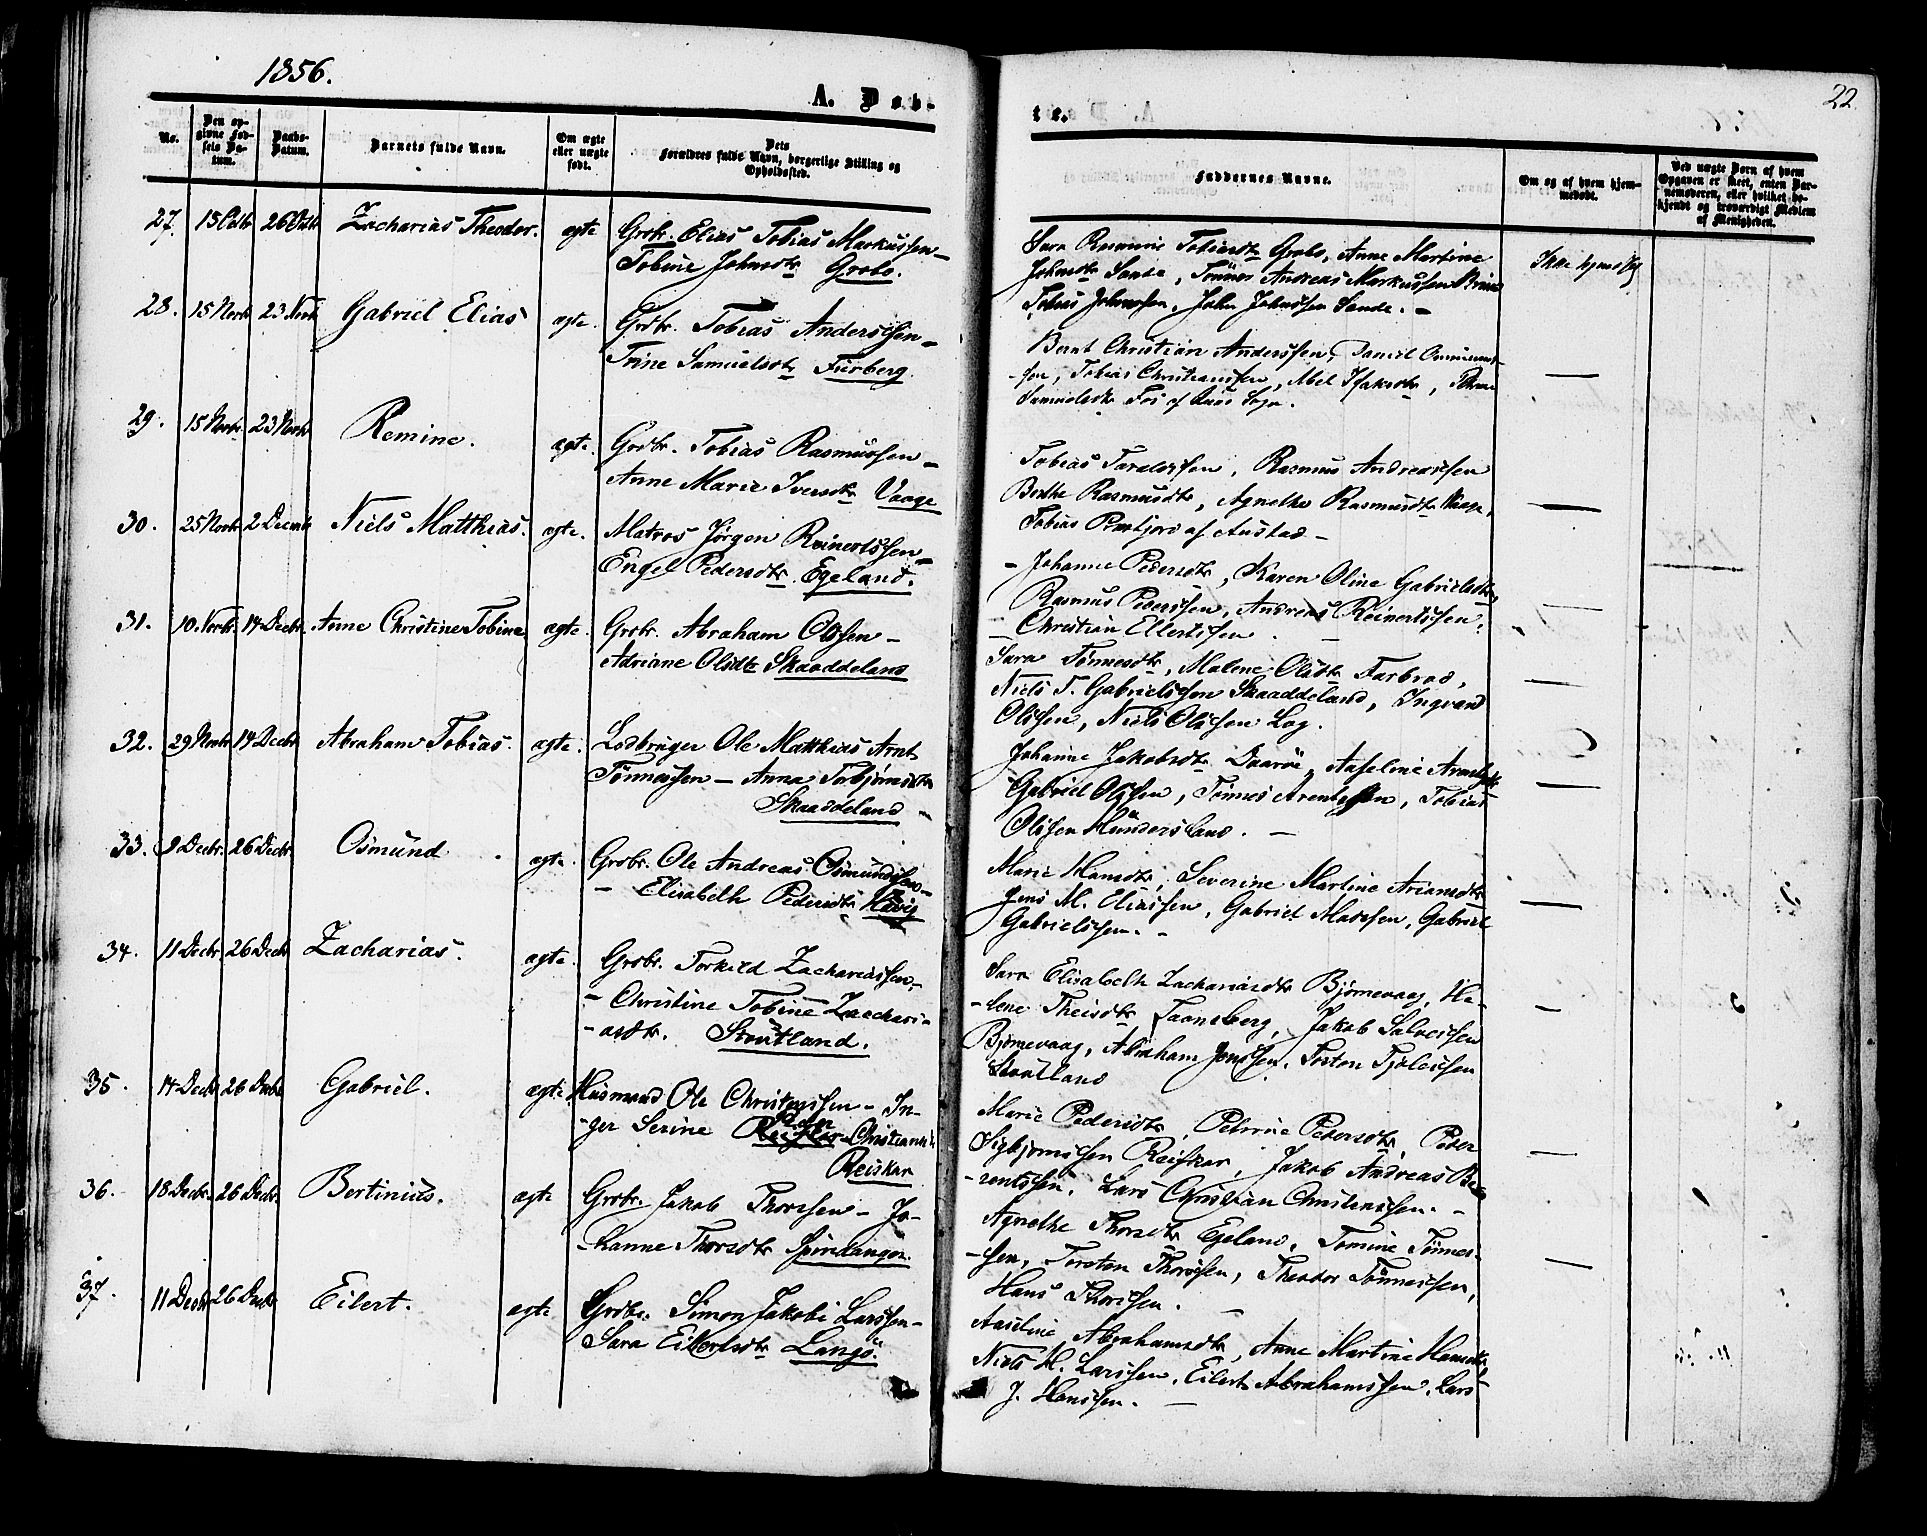 1856.
22
A. Døb-
te.
No.
Den op-
givne Fød-
sels Da-
tum.
Daabs-
Datum.
Barnets fulde Navn.
Om ægte
eller uægte
født.
Dets
Forældres fulde Navn, borgerlige Stilling og
Opholdssted.
Faddernes Navne.
Om og af hvem hjem-
medøbt.
Ved uægte Børn af hvem
Opgaven er skeet, enten Bar-
nemoderen, eller hvilket be-
kjendt og troværdigt Medlem
af Menigheden.
27. 15 Octbr 26 Octbr Zacharias Theodor. ægte
Grdbr. Elias Tobias Markussen –
Tobine Johnsdtr Grobo.
Sara Rasmine Tobiasdtr Grobo, Anne Martine
Johnsdtr Sande, Tönnes Andreas Markussen
Tobias Johnssen, John Johnssen Sande. –
Ikke hjemdøbt
28. 15 Novbr 23 Novbr Gabriel Elias ægte.
Grdbr. Tobias Anderssen –
Trine Samuelsdtr Furberg.
Bernt Christian Anderssen, Daniel
sen, Tobias Christianssen, Abel Isaksdtr,
Samuelsdtr Fos af Sogn.
—
29. 15 Novbr. 23 Novbr Remine. ægte.
Grdbr. Tobias Rasmussen –
Anne Marie Iversdtr Vaage
Tobias Taralssen, Rasmus Andreassen
Berthe Rasmusdtr, Agnethe Rasmusdtr Vaage,
Tobias af Austad –
—
30. 25 Novbr 2 Decmbr Niels Matthias. ægte.
Matros Jörgen Reinertssen –
Engel Pedersdtr. Egeland.
– Johanne Pedersdtr, Karen Oline Gabrielsdtr,
Rasmus Pederssen, Andreas Reinertssen,
– Christian Ellertssen. –
—
31. 10. Novbr. 14 Decbr. Anne Christine Tobine ægte.
Grdbr. Abraham Olssen –
Adriane Olsdtr Skaaddeland
Sara Tönnesdtr, Malene Olsdtr Farbrod,
Niels T. Gabrielssen Skaaddeland, Ingvard
Olssen, Niels Olssen Log.
—
32. 29 Novbr 14 Decbr Abraham Tobias. ægte.
Lodbruger Ole Matthias Arnt
Tönnessen – Anna Torbjörnsdtr
Skaaddeland –
Johanne Jakobsdtr Daaröe, Aaseline
Gabriel Olssen, Tönnes Arentssen, Tobias
Olssen Hundersland. –
—
33. 9 Decbr. 26 Decbr. Osmund ægte
Grdbr. Ole Andreas Osmundssen –
– Elisabeth Pedersdtr Hövig
Marie Hansdtr, Severine Martine Ariansdtr
Jens M. Eliassen, Gabriel Madssen, Gabriel
Gabrielssen. –
—
34. 11 Decbr 26 Decbr Zacharias. ægte.
Grdbr. Torkild Zachariassen –
– Christine Tobine Zachari-
– asdtr. Stoutland.
Sara Elisabeth Zachariasdtr Björnevaag, He-
– lene Theisdtr Faaneberg, Jakob Salvessen
Björnevaag, Abraham Jonssen, Torten Tjölvssen
Stoutland
—
35. 14 Decbr 26 Decbr Gabriel. ægte
Husmand Ole Christenssen – In-
– ger Serine Christiansdtr
Reiskar
Marie Pedersdtr, Petrine Pedersdtr, Peder
Sigbjörnssen Reiskar, Jakob Andreas Be-
– rentssen, Lars Christian Christenssen. –
—
36. 18 Decbr. 26 Decbr. Bertinius. ægte
Grdbr. Jakob Thorssen – Jo-
– hanne Thorsdtr Spirelangen.
Agnethe Thorsdtr Egeland, Tomine Tönnes-
– sen, Torsten Thorssen, Theodor Tönnessen,
Hans Thorssen. –
—
37. 11 Decbr 26 Decbr Eilert. ægte
Grdbr. Simon Jakobi Larssen –
Sara Eilertsdtr Langö.
Aaseline Abrahamsdtr, Anne Martine Hansdtr,
Niels H. Larssen, Eilert Abrahamssen, Lars
J. Hanssen. –